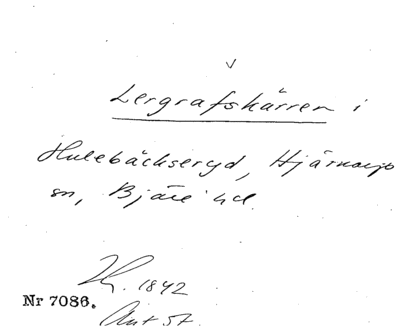 Lergrafskärren i
Hulebäckseryd, Hjärnarp
sn, Bjäre hd.
1842
Nr 7086.